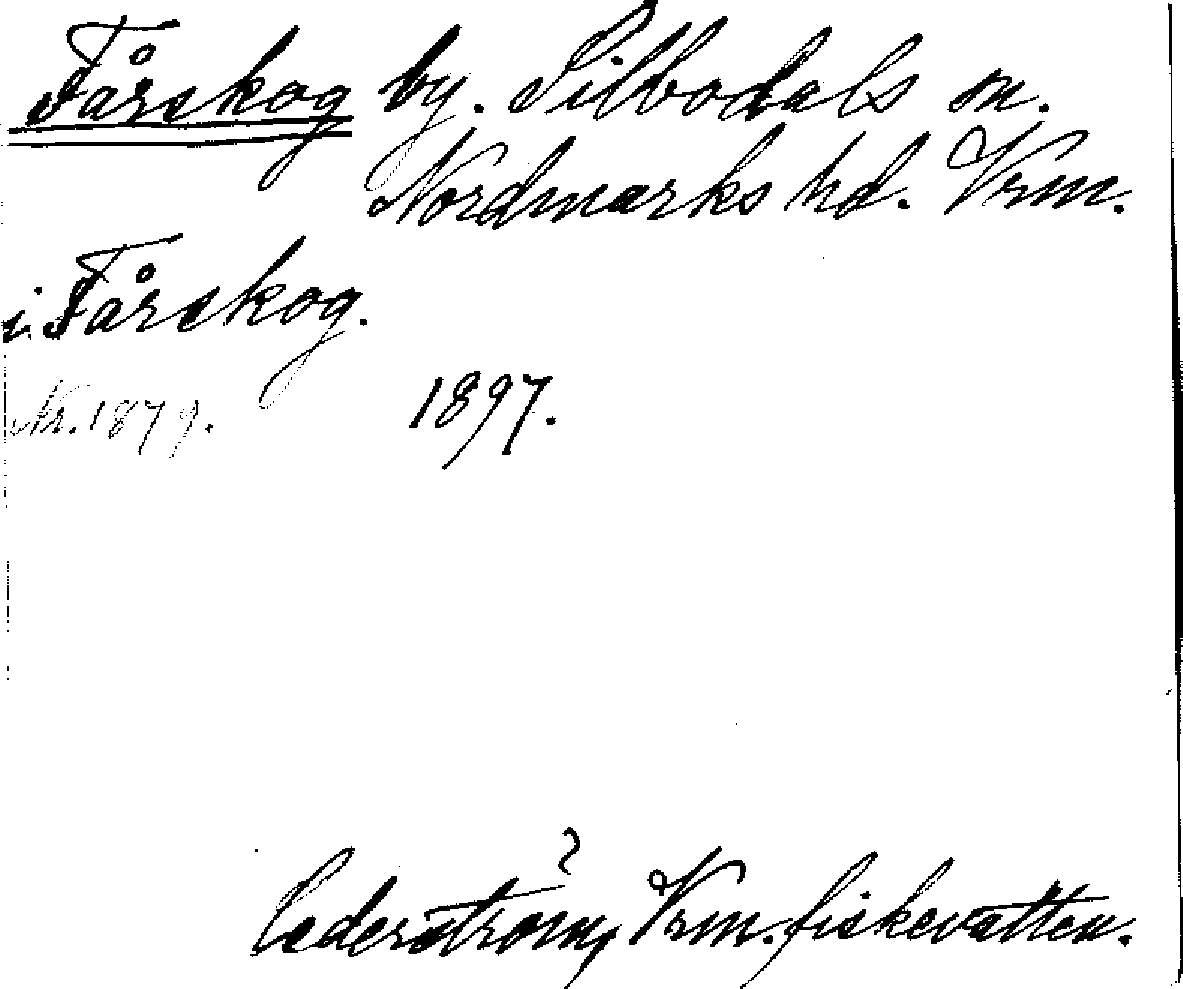 Fårskog by. Silbodals sn.
Nordmarks hd. Vrm.
i Fårskog.
Nr. 1879. 1897.
Cederström, Vrm. fiskevatten.